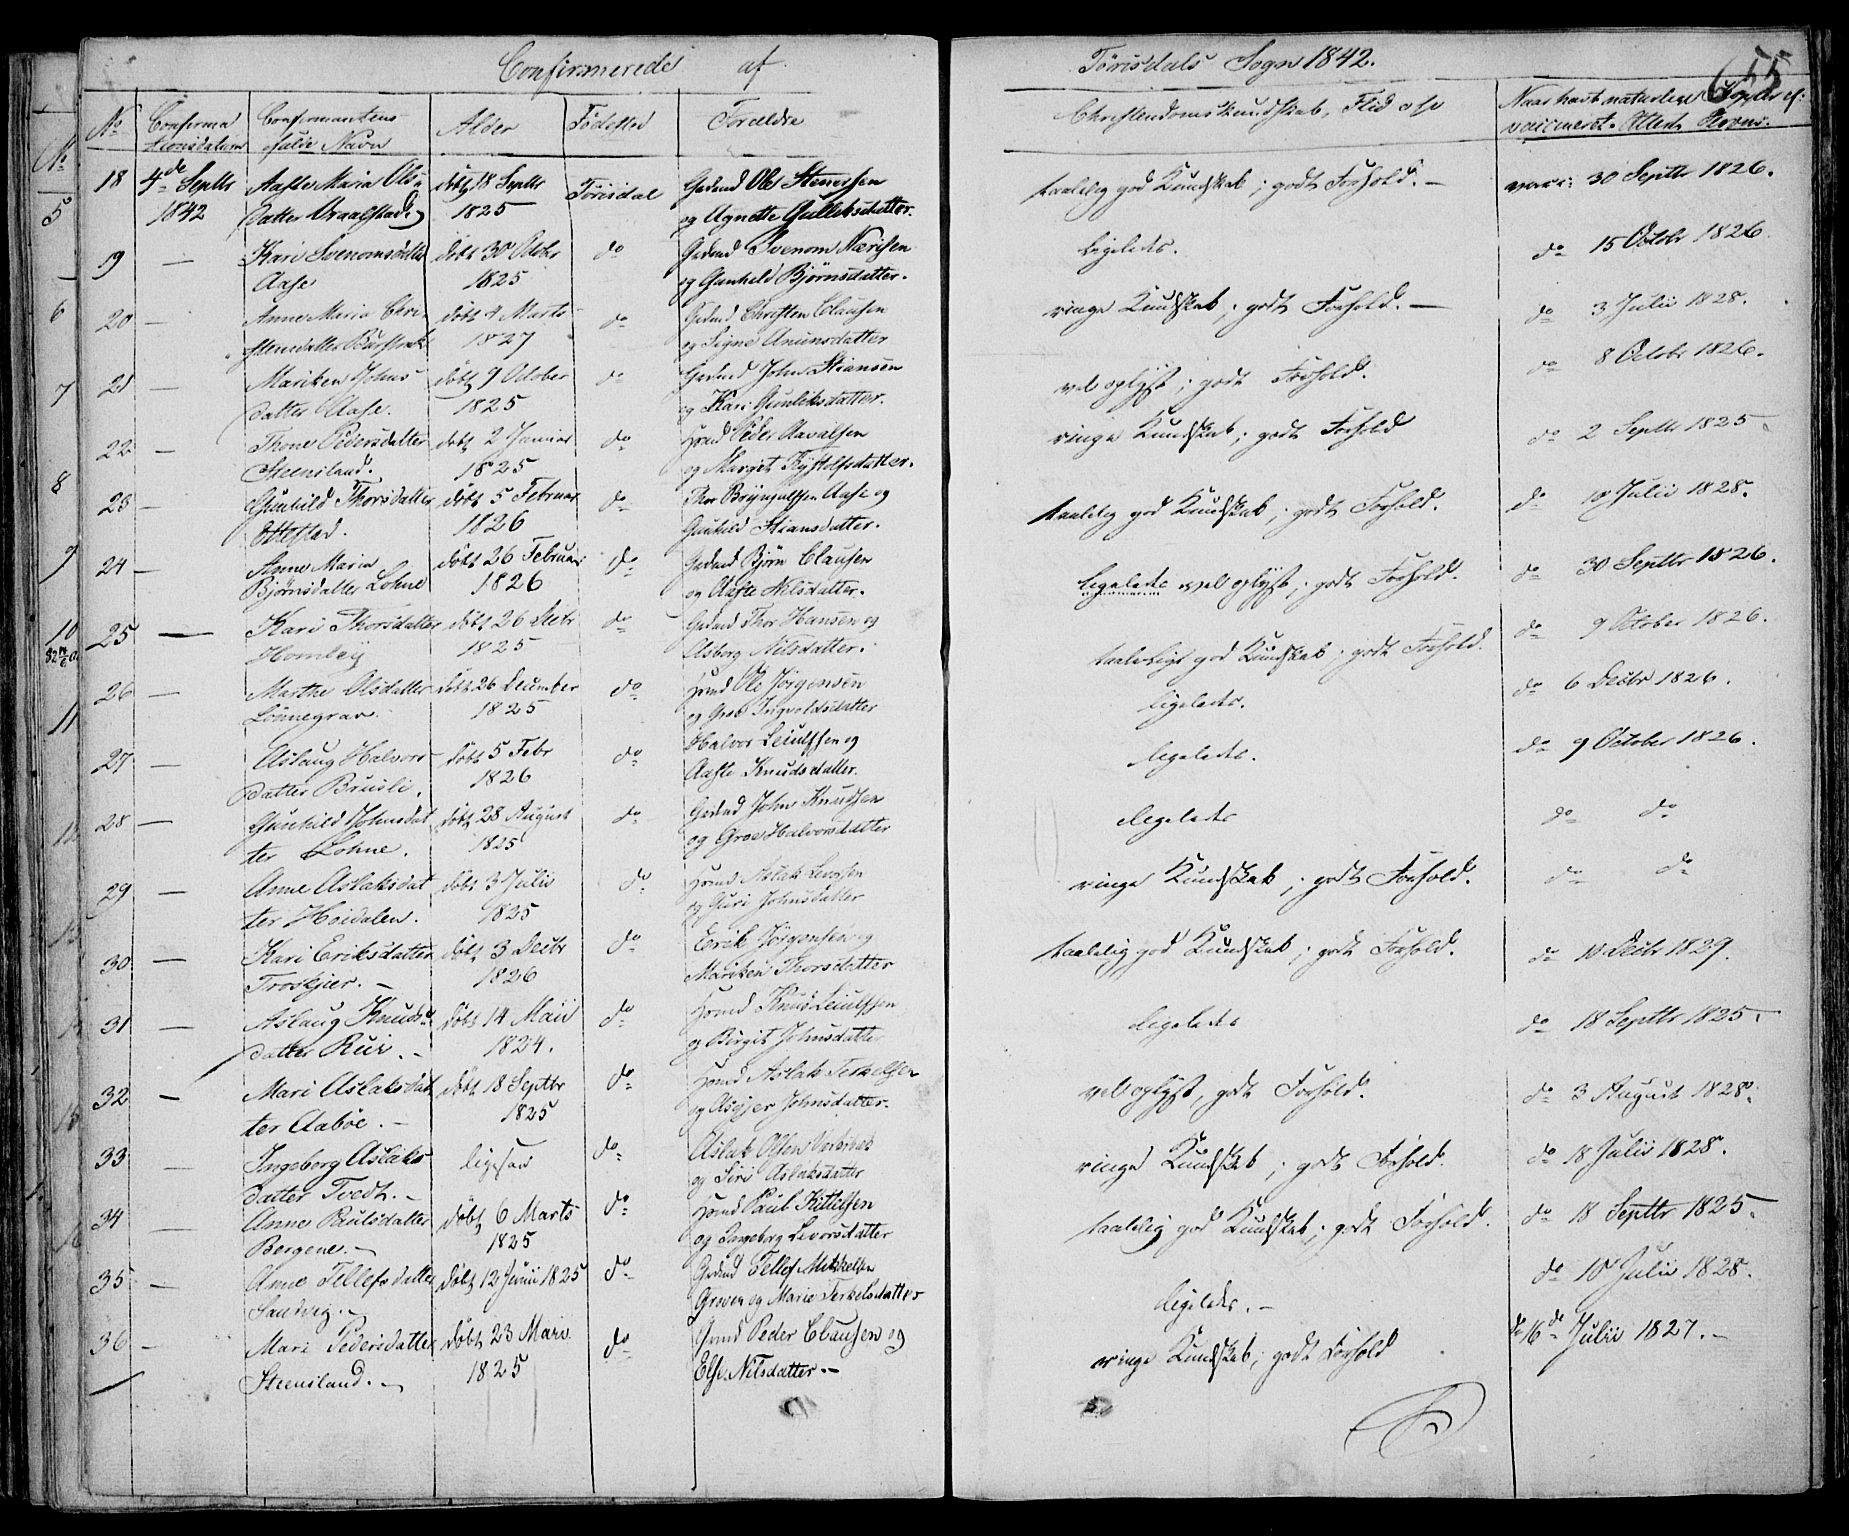 Confirmerede af Törisdals Sogn 1842.
655
No
Confirmationsdatum
Confirmantens fulde Navn
Alder
Födested
Forældre
Christendomskundskab, Flid osv
Naar havt naturlige Kopper el: vaccineret. Attest. Navn.
18 4de Septbr 1842 Aaste Maria Olsdatter Vraalstad döbt 18 Septbr 1825 Törisdal Gaardmd Ole Stenersen og Agnette Gulleksdatter. taalelig god Kundskab; godt Forhold. — vacc: 30 Septbr 1826.
19 — Kari Svenomsdatter Aase döbt 30 October 1825 do Gaardmd Svenom Nærisen og Gunhild Björnsdatter. ligeledes. do 15 Octobr 1826
20 — Anne Maria Christensdatter döbt 4 Marts 1827 do Gaardmd Christen Clausen og Signe Anunsdatter ringe Kundskab; godt Forhold. — do 3 Julii 1828.
21 — Mariken Johnsdatter Aase. döbt 9 October 1825 do Gaardmd John Stiansen og Kari Gunliksdatter. vel oplyst; godt Forhold. do 8 Octobr 1826.
22 — Thone Pedersdatter Steensland. döbt 2 Januar 1825 do Huusmd Peder Aavalsen og Margit Kjystolfsdatter. ringe Kundskab; godt Forhold do 2 Septbr 1825
23 — Gunhild Thorsdatter Ettestad. döbt 5 Februar 1826 do Thor Brynjulfsen Aase og Gunhild Stiansdatter. taalelig god Kundskab; godt Forhold. do 10 Julii 1828.
24 — Anne Maria Björnsdatter Lohne döbt 26 Februar 1826 do Gaardmd Björn Clausen og Aaste Nilsdatter. ligeledes vel oplyst; godt Forhold. do 30 Septbr 1826.
25 — Kari Thorsdatter Homlej döbt 26 Decbr 1825 do Gaardmd Thor Hansen og Asborg Nilsdatter. taaleligt god Kundskab; godt Forhold. do 9 October 1826.
26 — Marthe Olsdatter Lönnegrav döbt 26 December 1825 do Huusmd Ole Jörgensen og Groe Ingvoldsdatter ligeledes. do 6 Decbr 1826.
27 — Aslaug Halvorsdatter Brusli. döbt 5 Febr 1826 do Halvor Leiulfsen og Aaste Knudsdatter. ligeledes. do 9 October 1826.
28 — Gunhild Johnsdatter Lohne. döbt 28 August 1825 do Gaardmd John Knudsen og Groe Halvorsdatter ligeledes do do
29 — Anne Aslaksdatter Höidalen. döbt 3 Julii 1825 do Huusmd Aslak Levorsen og Guri Johnsdatter ringe Kundskab; godt Forhold. do do
30 — Kari Eriksdatter Troskjær. — döbt 3 Decbr 1826 do Erik Jörgensen og Mariken Thorsdatter taalelig god Kundskab; godt Forhold. do 10 Decbr 1829.
31 — Aslaug Knudsdatter Rui. — döbt 14 Maii 1824. do Huusmd Knud Leiulfsen og Birgit Johnsdatter ligeledes do 18 Septbr 1825.
32 — Mari Aslaksdatter Aaböe. — döbt 18 Septbr 1825 do Huusmd Aslak Terkelsen og Asgjer Johnsdatter. vel oplyst, godt Forhold. do 3 August 1828.
33 — Ingeborg Aslaksdatter Tvedt. — ligesaa do Aslak Olsen og Siri Aslaksdatter ringe Kundskab; godt Forhold. do 18 Julii 1828.
34 — Anne Paulsdatter Bergene. — döbt 6 Marts 1825 do Huusmd Paul Kittelsen og Ingeborg Levorsdatter taalelig god Kundskab; godt Forhold. do 18 Septbr 1825.
35 — Anne Tellefsdatter Sandvig. — döbt 12 Junii 1825 do Gaardmd Tellef Mikkelsen Groven og Marie Terkelsdatter ligeledes. — do 10 Julii 1828.
36 — Mari Pedersdatter Steensland. — döbt 23 Mari 1825 do Huusmd Peder Clausen og Else Nilsdatter. — ringe Kundskab; godt Forhold do 16de Julii 1827. —
No
5
6
7
8
9
10
11